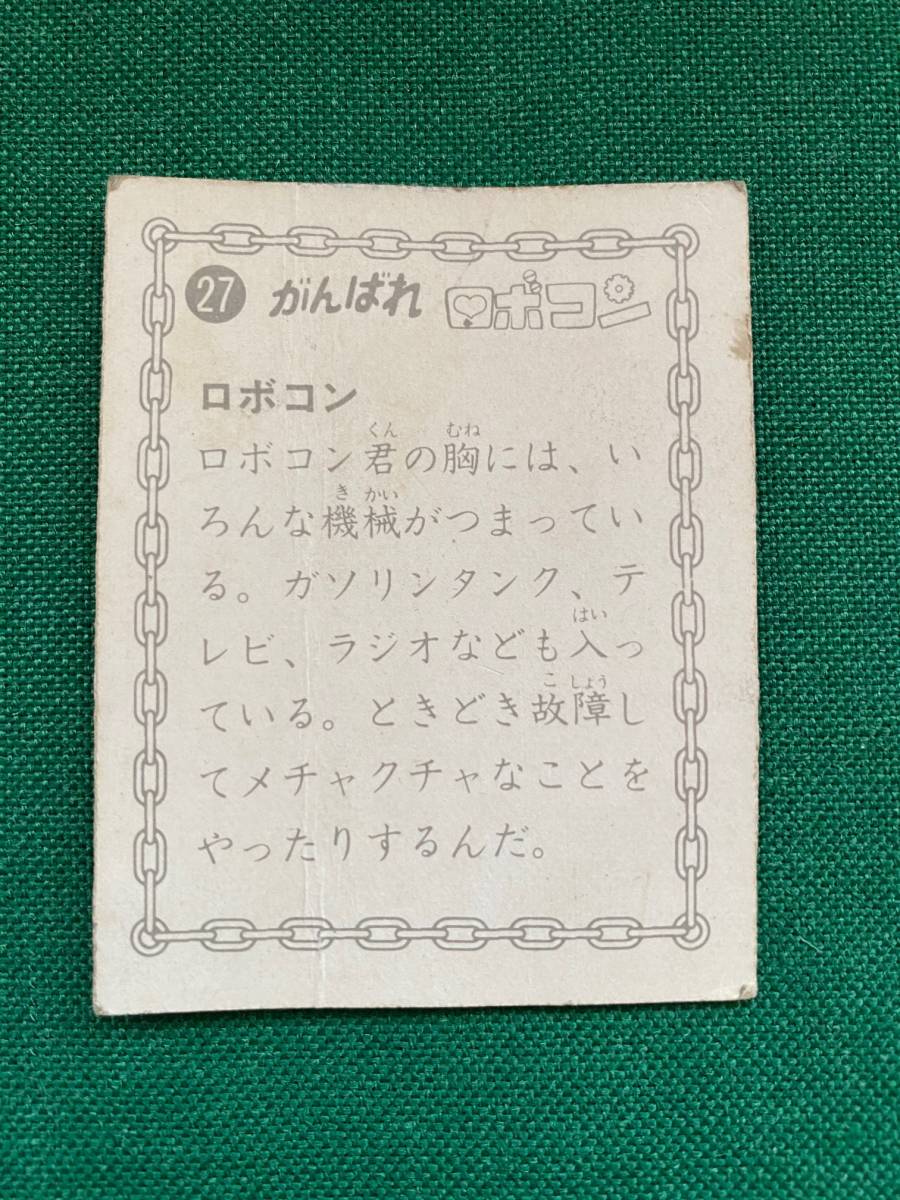 27 がんばれ ロボコン
ロボコン
ロボコン君の胸には、い
くん むね
ろんな機械がつまってい
き かい
る。ガソリンタンク、テ
レビ、ラジオなども入っ
はい
ている。ときどき故障し
こ しょう
てメチャクチャなことを
やったりするんだ。